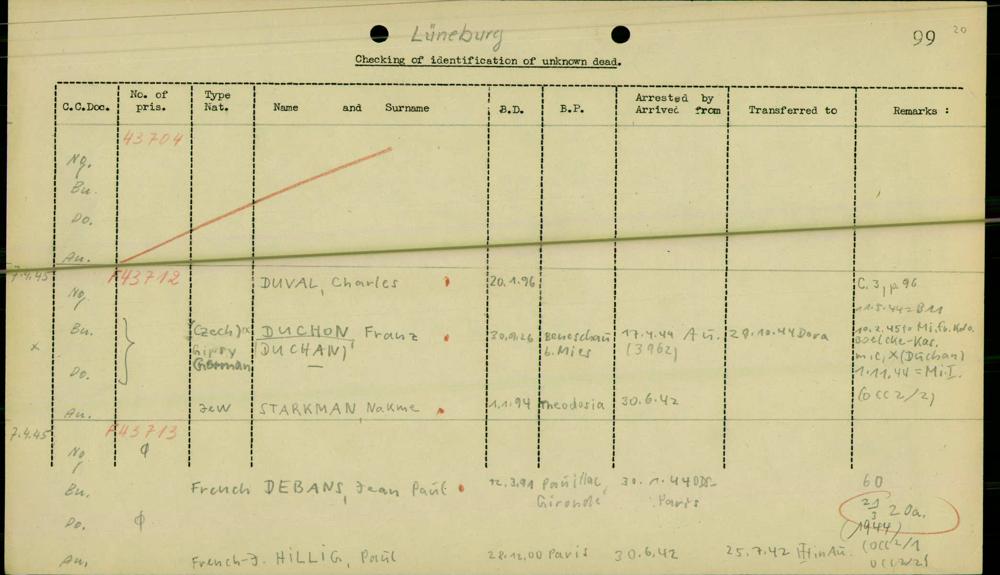 Lüneburg
99 20
Checking of identification of unknown dead.
C.C.Doc. No. of pris. Type Nat. Name and Surname B.D. B.P. Arrested by Arrived from Transferred to Remarks :
43704
Ng.
Bu.
Do.
Au.
7.4.45 F43712
Ng DUVAL, Charles 20.1.96 C.3, p 96
11.5.44=B11
Bu. (Czech) DUCHON, Franz 30.9.26 Beneschau 17.4.44 Au. 29.10.44 Dora 10.2.45 to
x Gipsy (DUCHAN) b. Mies (3962) Boelcke-Kas.
German m.c, X (Duchan)
Do. 1.11.44 = Mi.I.
Au. Jew STARKMAN Nakme 1.1.94 Theodosia 30.6.42 (OCC2/2)
7.4.45 F43713
Ng φ
Bu. French DEBANS, Jean Paul 12.3.91 Pauillac, 30.1.44 60
Gironde Paris
Do. φ 21/3 20a.
(1944)
Au. French-J. HILLIG, Paul 28.12.00 Paris 30.6.42 25.7.42 in Au. (OCC2/1
OCC2/2)